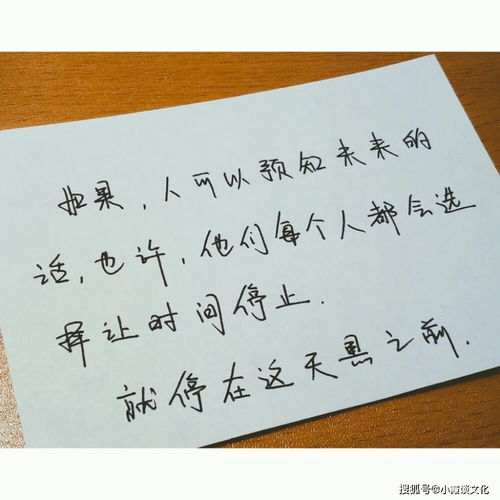 如果，人可以预知未来的
话，也许，他们每个人都会选
择让时间停止.
就停在这天黑之前.
搜狐号@小霞谈文化